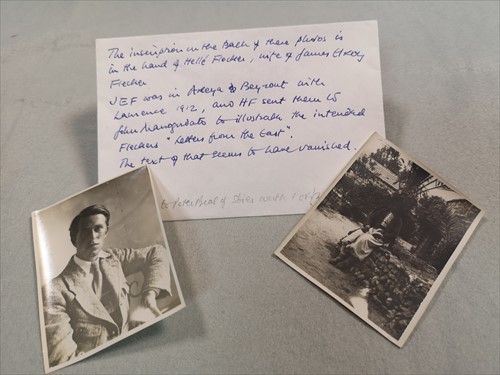 The inscription on the Back of these photos is
in the hand of Hellé Flecker, wife of James Elroy
Flecker
JEF was in Areya & Beyrout with
Lawrence 1912, and HF sent them to
John Mavrogordato to illustrate the intended
Fleckers "Letters from the East".
The text of that seems to have vanished.
to Peter of